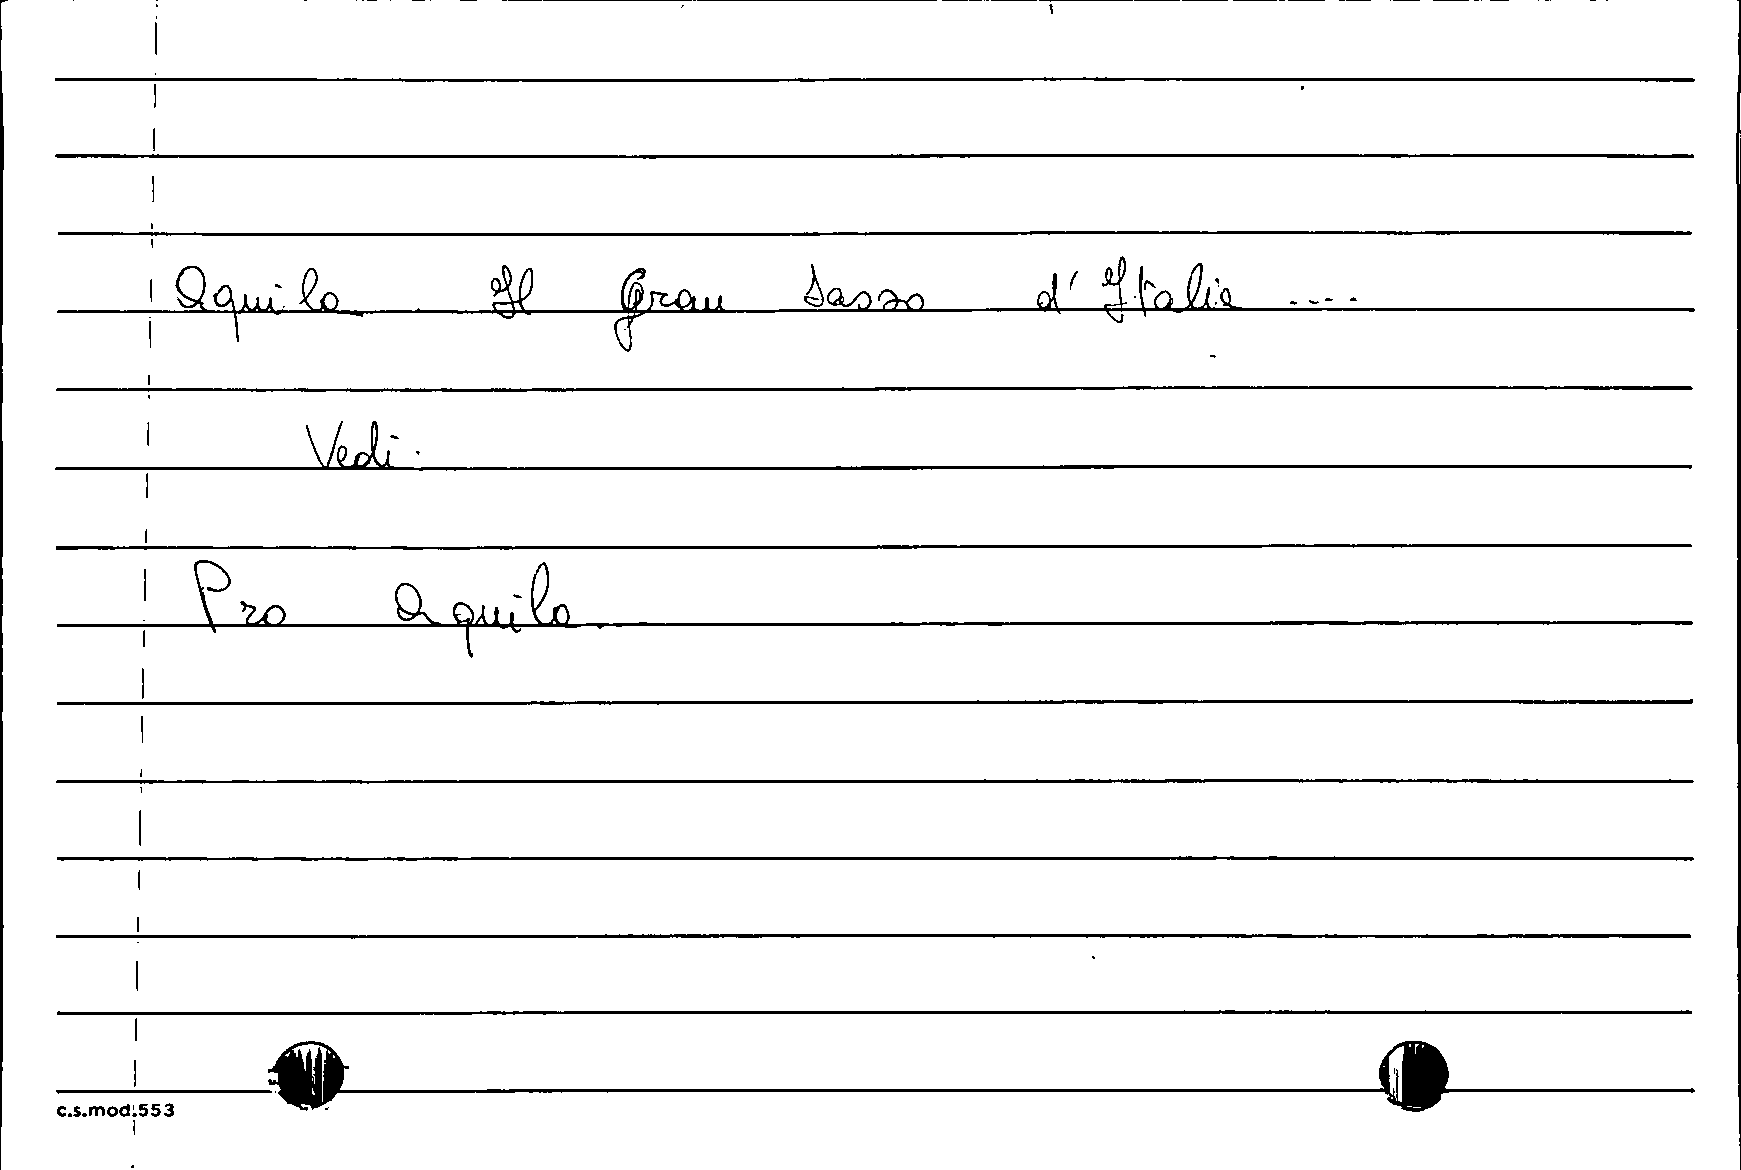 Aquila. Il Gran Sasso d'Italia ....
Vedi.
Pro Aquila.
c.s.mod.553